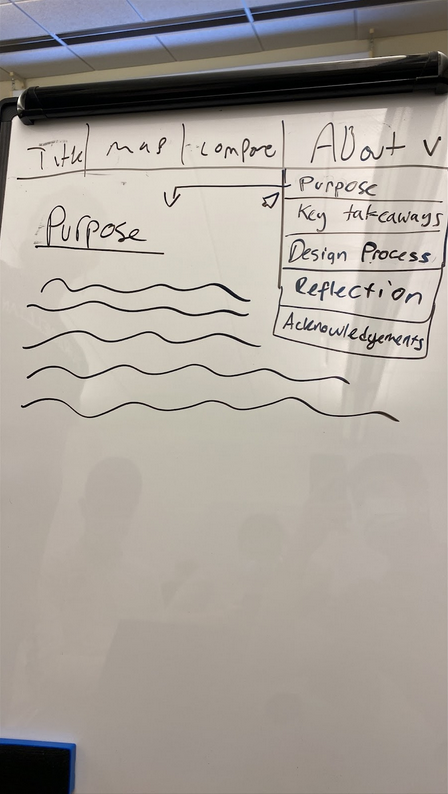 Title map compare About v
Purpose
Key takeaways
Design Process
Reflection
Acknowledgements
Purpose